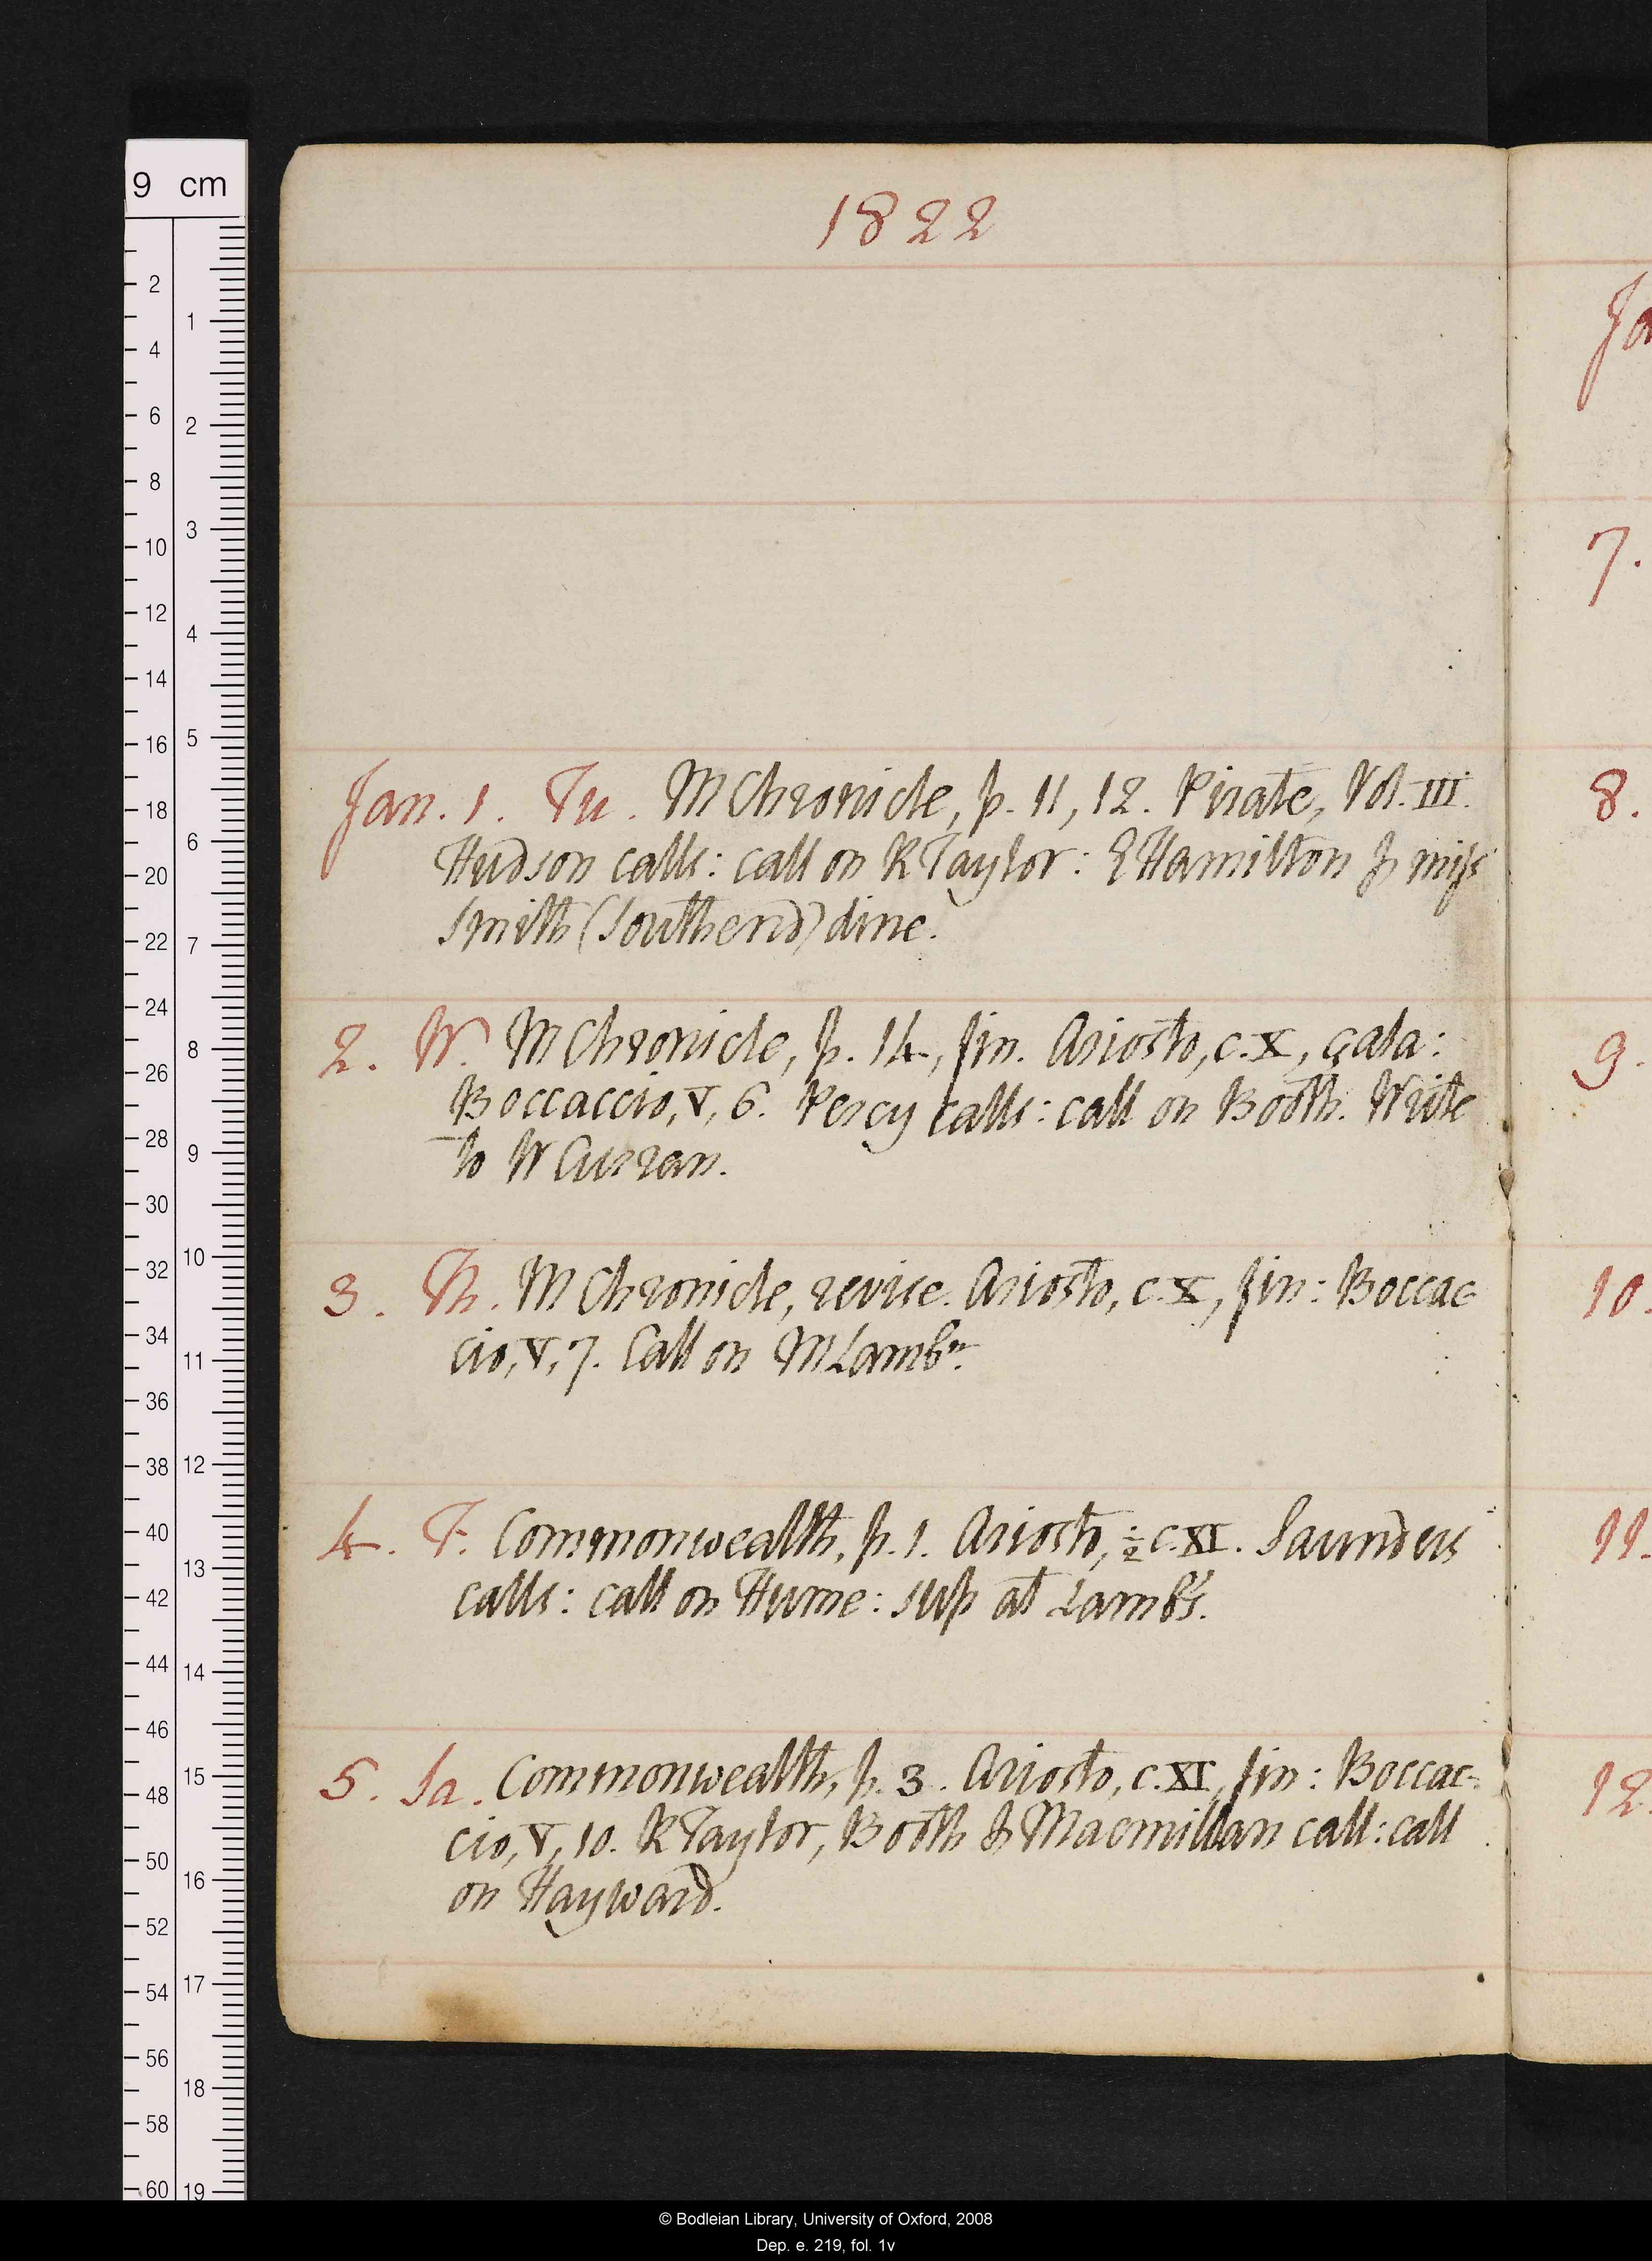 1822
Jan. 1. Tu. M Chronicle, p. 11, 12. Pirate, Vol. III.
Hudson calls: call on R Taylor: E Hamilton & miss
Smith (Southend) dine.
2. W. M Chronicle, p. 14, fin. Ariosto, c. X, çala:
Boccaccio, V, 6. Percy calls: call on Booth. Write
to W Curran.
3. Th. M Chronicle, revise. Ariosto, c. X, fin: Boccac-
cio, V, 7. Call on M Lamb n.
4. F. Commonwealth, p. 1. Ariosto, ½ c. XI. Saunders
calls: call on Hume: sup at Lamb's.
5. Sa. Commonwealth, p. 3. Ariosto, c. XI, fin: Boccac-
cio, V, 10. R Taylor, Booth & Macmillan call: call
on Hayward.
Ja
7.
8.
9.
10.
11.
12
9 cm
© Bodleian Library, University of Oxford, 2008
Dep. e. 219, fol. 1v